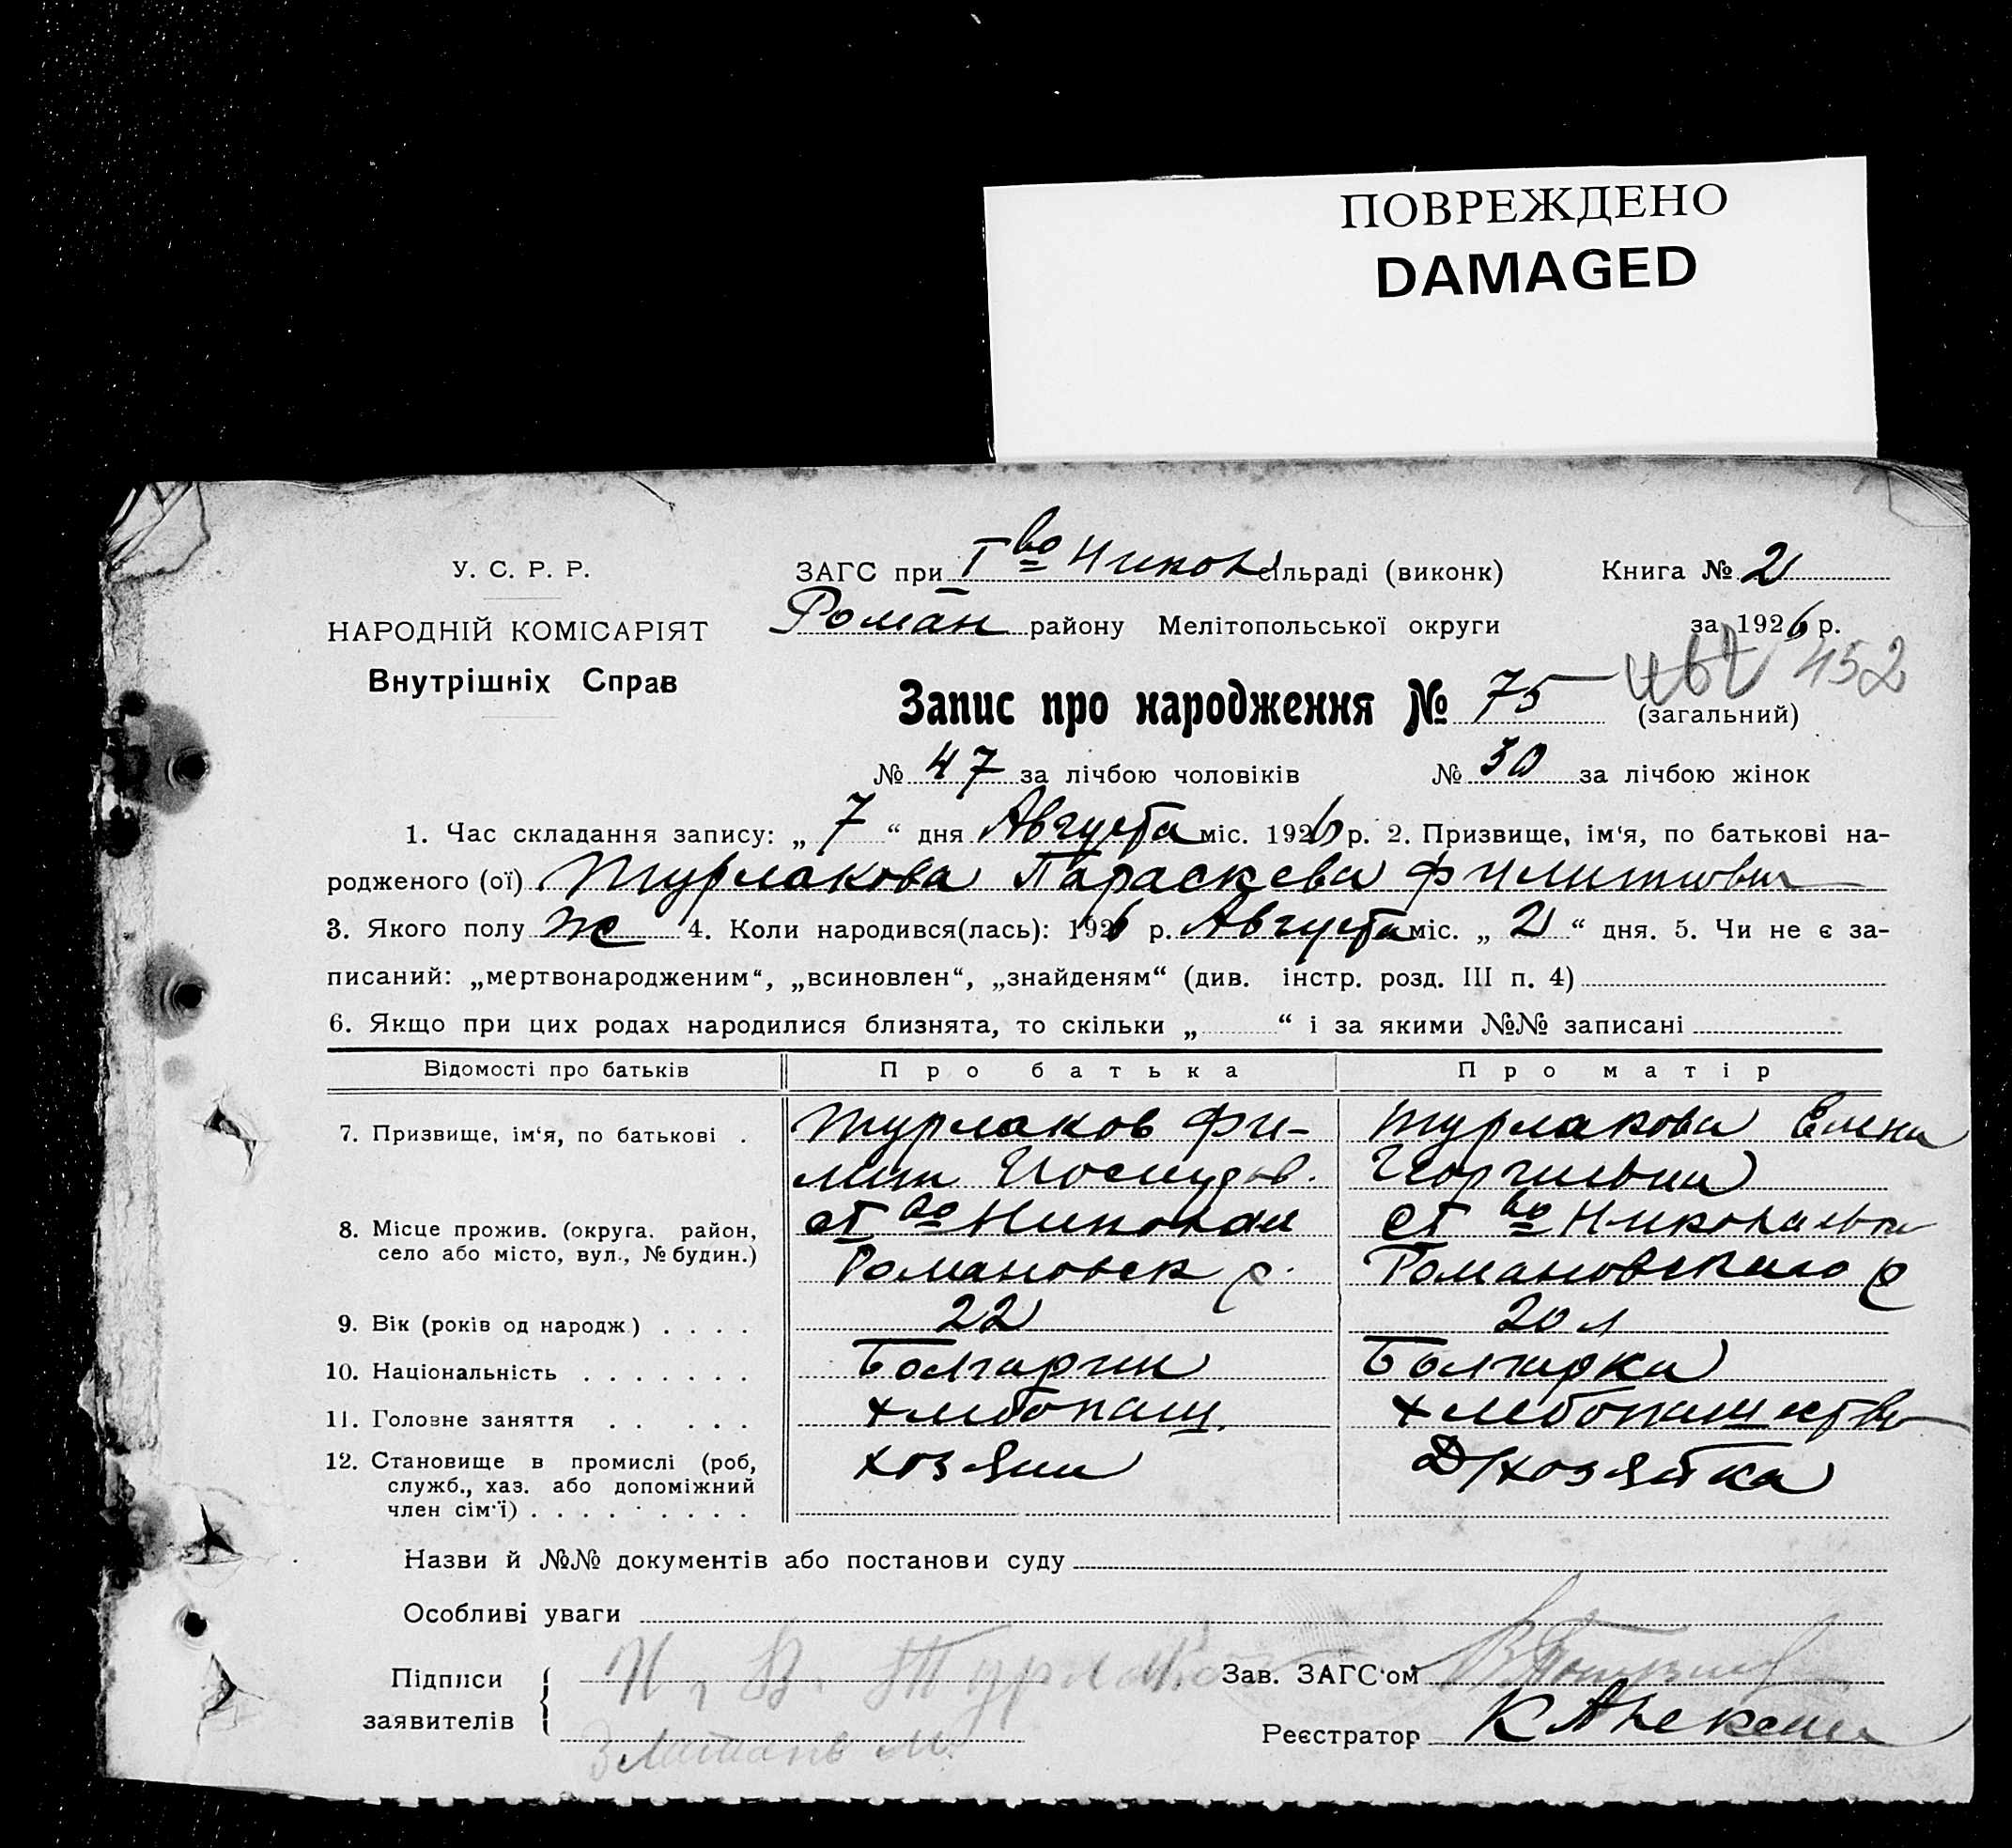 ПОВРЕЖДЕНО
DAMAGED
У. С. Р. Р.
НАРОДНІЙ КОМІСАРІЯТ
Внутрішніх Справ
ЗАГС при I во Никол сільраді (виконк) Книга № 2
Роман району Мелітопольської округи за 1926 р.
Запис про народження № 75 (загальний) 452
№ 47 за лічбою чоловіків № 30 за лічбою жінок
1. Час складання запису: „ 7 “ дня Августа міс. 1926 р. 2. Призвище, ім‘я, по батькові на-
родженого (ої) Турлакова Параскева Филиповна
3. Якого полу Ж 4. Коли народився(лась): 1926 р. Августа міс. „ 2 “ дня. 5. Чи не є за-
писаний: „мертвонародженим“, „всиновлен“, „знайденям“ (див. інстр. розд. III п. 4)
6. Якщо при цих родах народилися близнята, то скільки „ “ і за якими №№ записані
Відомості про батьків Про батька Про матір
7. Призвище, ім‘я, по батькові . Турлаков Фи- Турлакова Елена
лип Георгиевна
8. Місце прожив. (округа. район, ст во Николаи ст во Николаевка
село або місто, вул., № будин.) Романовск р. Романовского р
9. Вік (років од народж) . . . . 22 20 л
10. Національність . . . . . . . Болгарин Болгарка
11. Головне заняття . . . . . хлебопаш. хлебопашество
12. Становище в промислі (роб, хозяин Д/хозяйка
служб., хаз. або допоміжний
член сім‘ї) . . . . . . . .
Назви й №№ документів або постанови суду
Особливі уваги
Підписи Турлако Зав. ЗАГС‘ом
заявителів Златанв М. Реєстратор К Алексеи